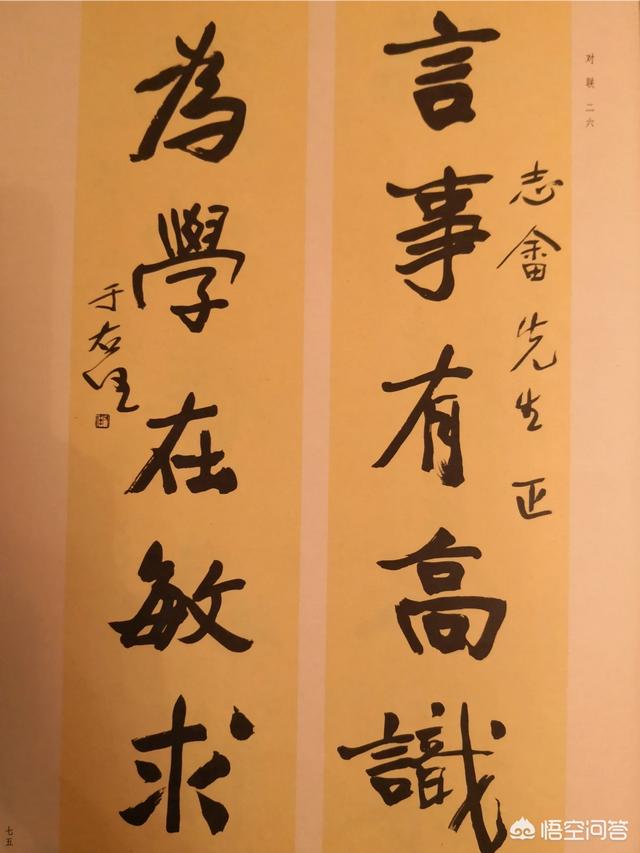 对联二六
志畬先生正
言事有高識
為學在敏求
于右任
七五
悟空问答